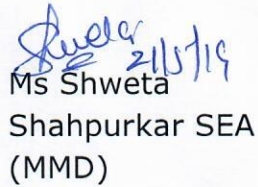 Shweta
21/5/19
Ms Shweta
Shahpurkar SEA
(MMD)